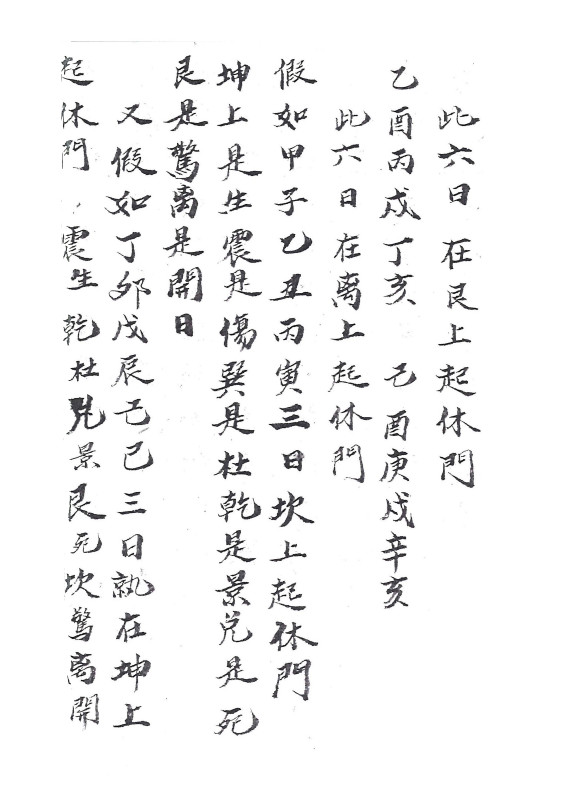 此六日在艮上起休門
乙酉丙戌丁亥 己酉庚戌辛亥
此六日在离上起休門
假如甲子乙丑丙寅三日坎上起休門
坤上是生震是傷巽是杜乾是景兑是死
艮是驚离是開日
又假如丁卯戊辰己巳三日孰在坤上
起休門 震生乾杜兑景艮死坎驚离開